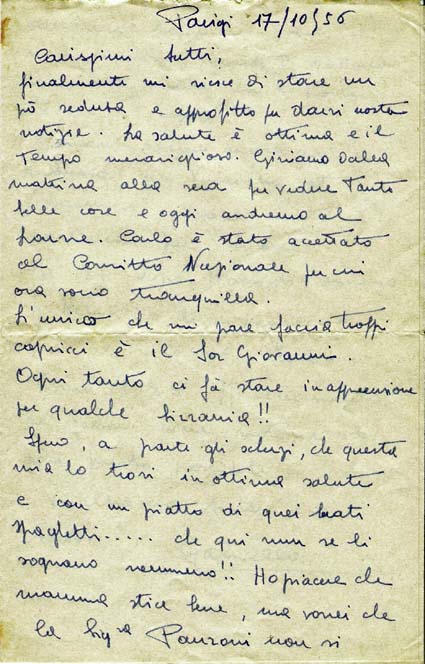 Parigi 17/10/56
Carissimi tutti,
finalmente mi riesce di stare un
pò seduta e approfitto per darvi nostre
notizie. La salute è ottima e il
tempo meraviglioso. Giriamo dalla
mattina alla sera per vedere tante
belle cose e oggi andremo al
Louvre. Carlo è stato accettato
al Convitto Nazionale per cui
ora sono tranquilla.
L'unico che mi pare faccia troppi
capricci è il Sor Giovanni.
Ogni tanto ci fà stare in apprensione
per qualche bizzarria!!
Spero, a parte gli scherzi, che questa
mia lo trovi in ottima salute
e con un piatto di quei beati
spaghetti..... che qui non se li
sognano nemmeno!! Ho piacere che
mamma stia bene, ma vorrei che
la Sig.ra Panzoni non si